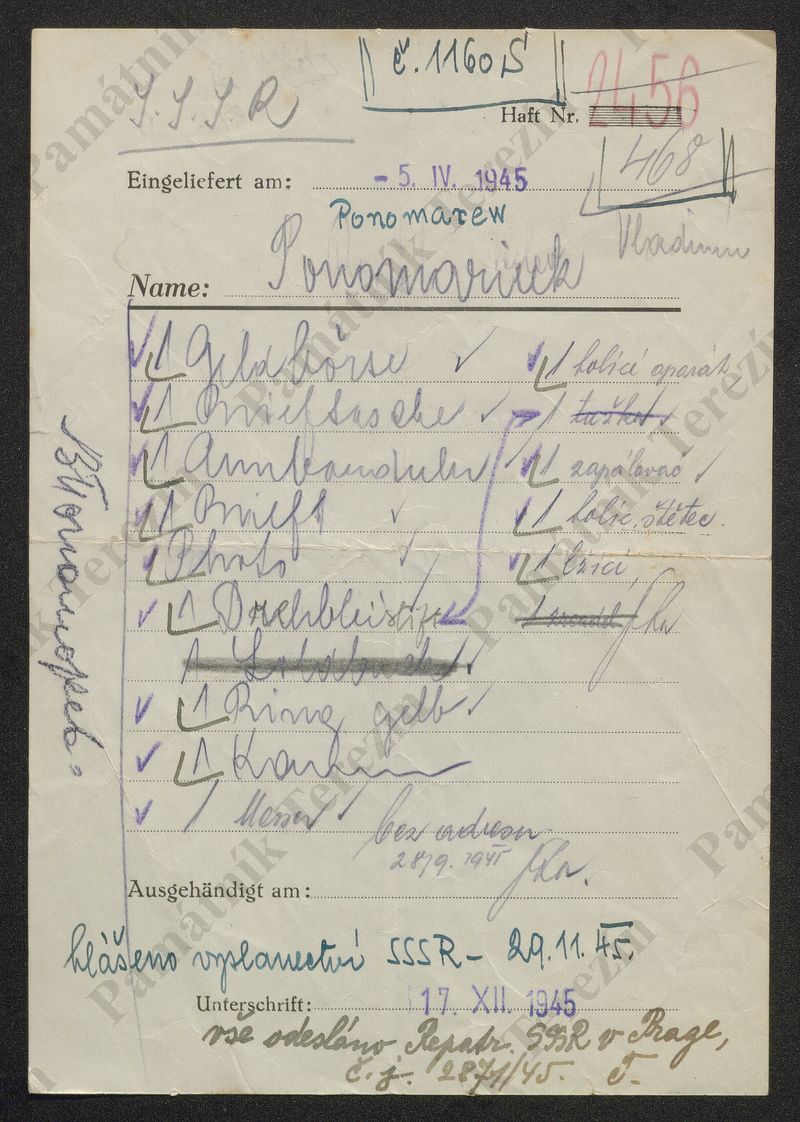 č. 1160 S
S.S.S.R
Haft Nr. 2456
468
Eingeliefert am: - 5. IV. 1945
Ponomarew
Vladimir
Name:
1 Geldbörse
1 holicí aparát
1 Brieftasche
1 tužka
1 Armbanduhr
1 zapalovač
1 Brieft
1 holic. štětec.
Photo
1 lžíci,
1 Drehbleistift
1
1
1 Ring gelb
1 Kamm
1 Messer
bez adresy
28/9. 1945
Ausgehändigt am:
hlášeno vyslanectví SSSR - 29.11.45.
Unterschrift: 17. XII. 1945
vše odesláno Repatr. SSSR v Praze,
č.j. 2871/45. T.
Památník Terezín